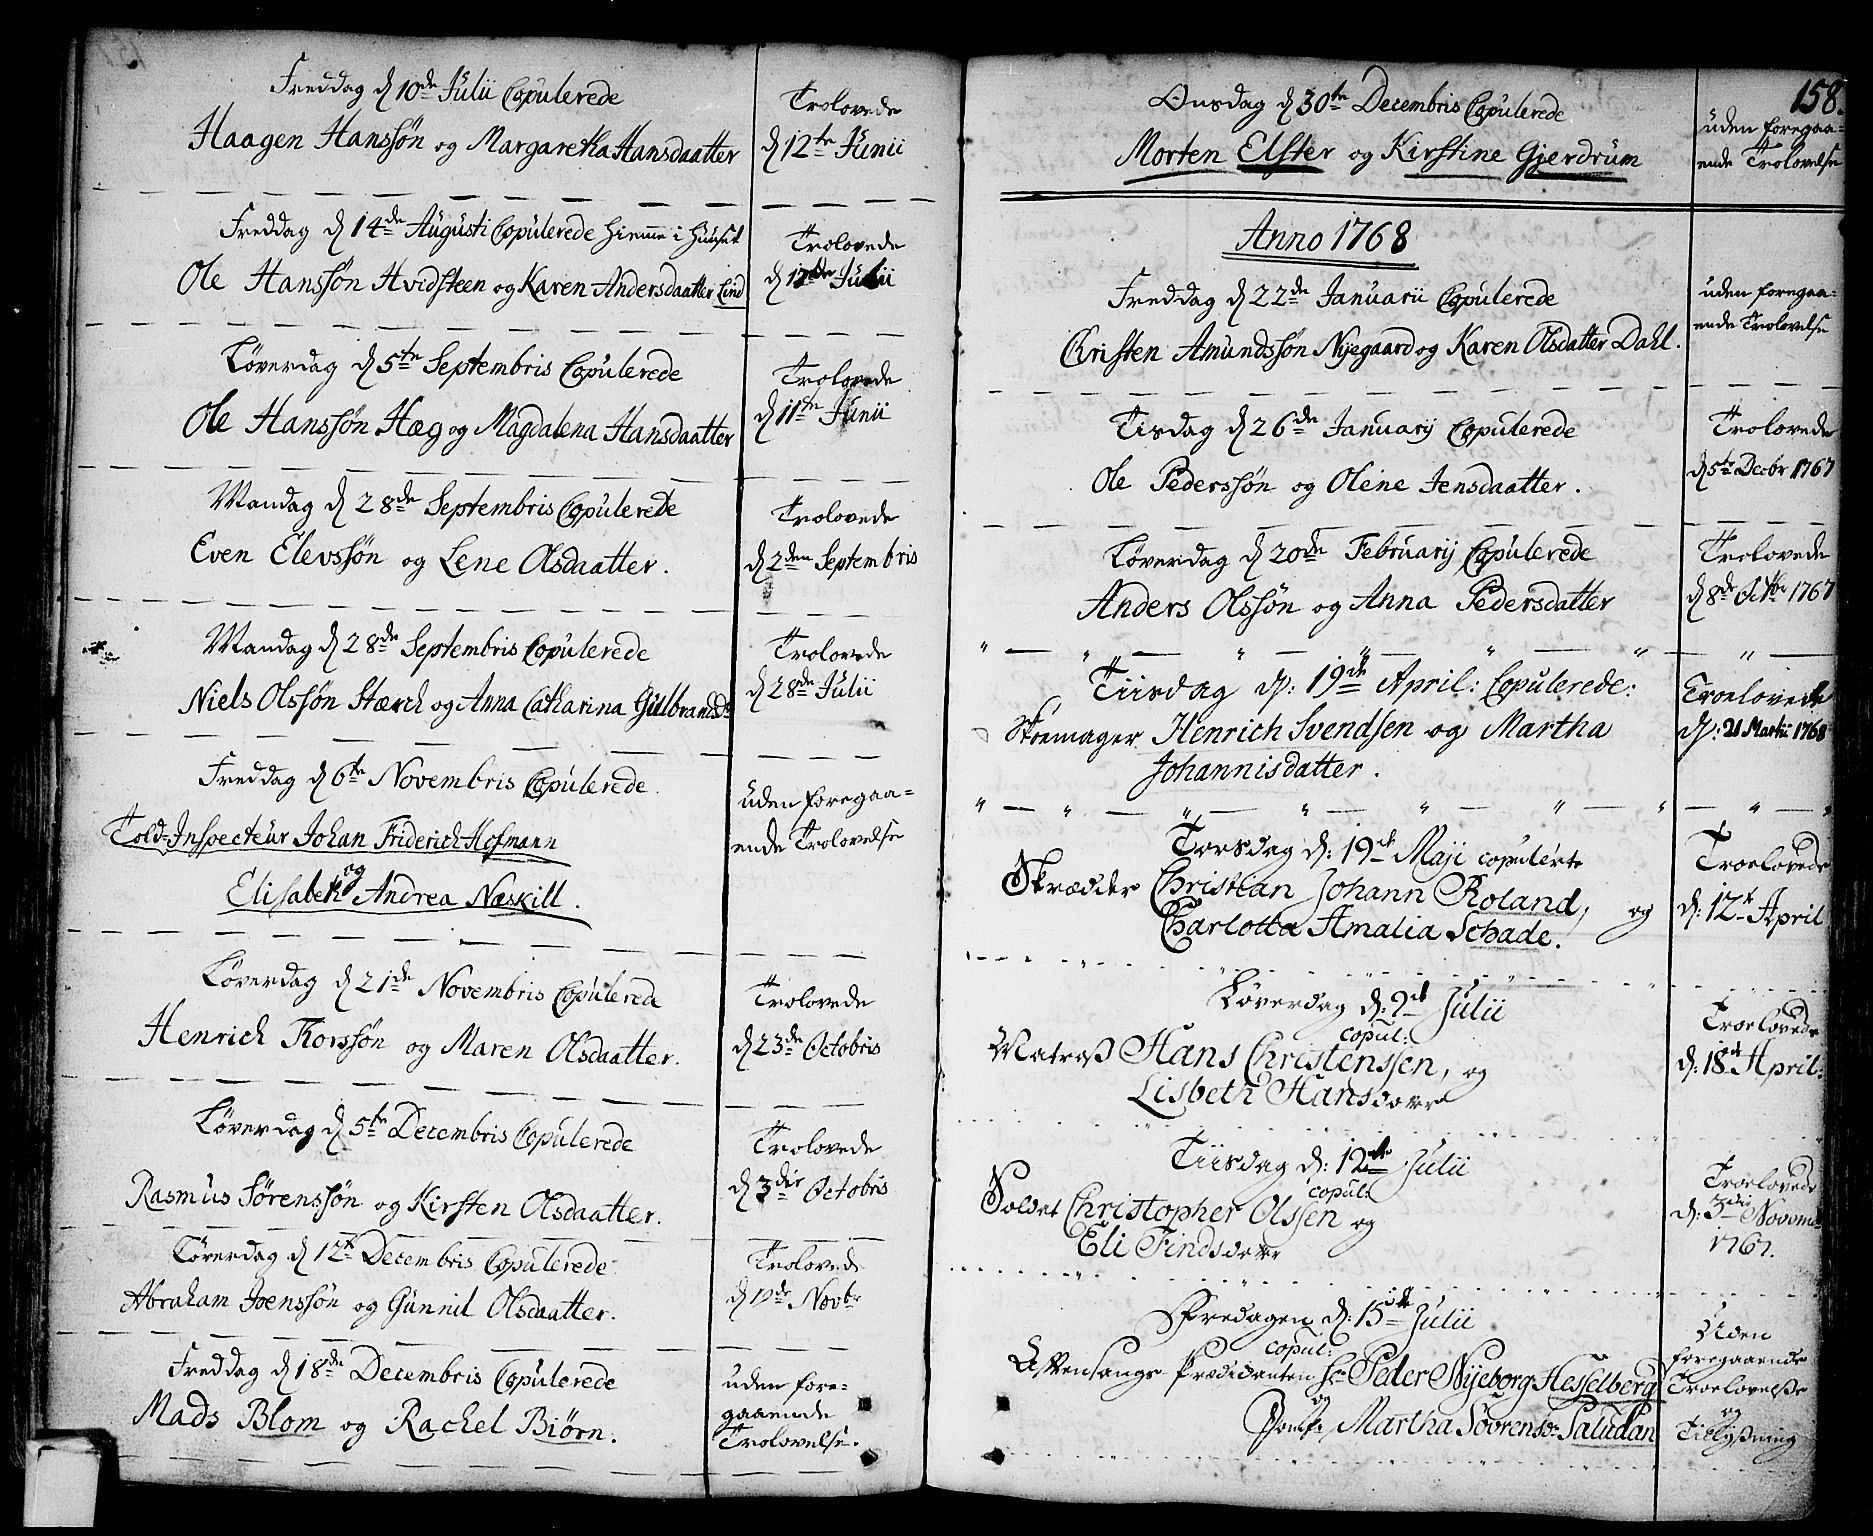 Freddag d 10de Julii Copulerede
Haagen Hanssøn og Margaretha Hansdaatter
Trolovede
d 12te Junii
Freddag d 14de Augusti Copulerede hiemme i Huuset
Ole Hanssøn Hvidsteen og Karen Andersdaatter Lind
Trolovede
d 17de Julii
Løverdag d 5te Septembris Copulerede
Ole Hanssøn Hæg og Magdalena Hansdaatter
Trolovede
d 11te Junii
Mandag d 28de Septembris Copulerede
Even Elevssøn og Lene Olsdaatter.
Trolovede
d 2den Septembris
Mandag d 28de Septembris Copulerede
Niels Olssøn Stærch og Anna Catharina Gulbrandsdr
Trolovede
d 28de Julii
Freddag d 6te Novembris Copulerede
Told-Inspecteur Johan Friderich Hofmann
og
Elisabeth Andrea Næskill.
uden foregaa=
ende Trolovelse
Løverdag d 21de Novembris Copulerede
Henrich Thorssøn og Maren Olsdaatter.
Trolovede
d 23de Octobris
Løverdag d 5te Decembris Copulerede
Rasmus Sørenssøn og Kirsten Olsdaatter.
Trolovede
d 3die Octobris
Løverdag d 12te Decembris Copulerede
Abraham Joenssøn og Gunnil Olsdaatter.
Trolovede
d 19de Novbr
Freddag d 18de Decembris Copulerede
Mads Blom og Rachel Biørn.
uden fore=
gaaende
Trolovelse.
158.
Onsdag d 30te Decembris Copulerede
Morten Elster og Kirstine Gjerdrum
uden foregaa=
ende Trolovelse
Anno 1768
Freddag d 22de Januarii Copulerede
Christen Amundssøn Nyegaard og Karen Olsdatter Dahl.
uden foregaa=
ende Trolovelse
Tisdag d 26de Januarij Copulerede
Ole Pederssøn og Olene Jensdaatter.
Trolovede
d 5te Decbr 1767
Løverdag d 20de Februarij Copulerede
Anders Olssøn og Anna Pedersdatter
Trolovede
d 8de Octbr 1767
Tiisdag d: 19de April: Copulerede:
Skoemager Henrich Svendsen og Martha
Johannisdatter.
Troelovede
d: 21 Martii 1768
Torsdag d: 19de Maji copulerte
Skrædder Christian Johann Roland, og
Charlotta Amalia Schade.
Troelovede
d: 12t April
Løverdag d: 9de Julii
copul:
Matros Hans Christenssen, og
Lisbeth Hansdatter
Troelovede
d: 18de April:
Tiisdag d: 12te Julii
copul:
Soldat Christopher Olssen og
Eli Findsdatter
Troelovede
d: 3die Novemb
1767.
Fredagen d: 15de Julii
copul:
Aftensangs-Prædicanten Hr Peder Nyeborg Hesselberg
og
Jomfr Martha Sørensdr Saludan
Uden
foregaaende
Troelovelse
og
Tillysning